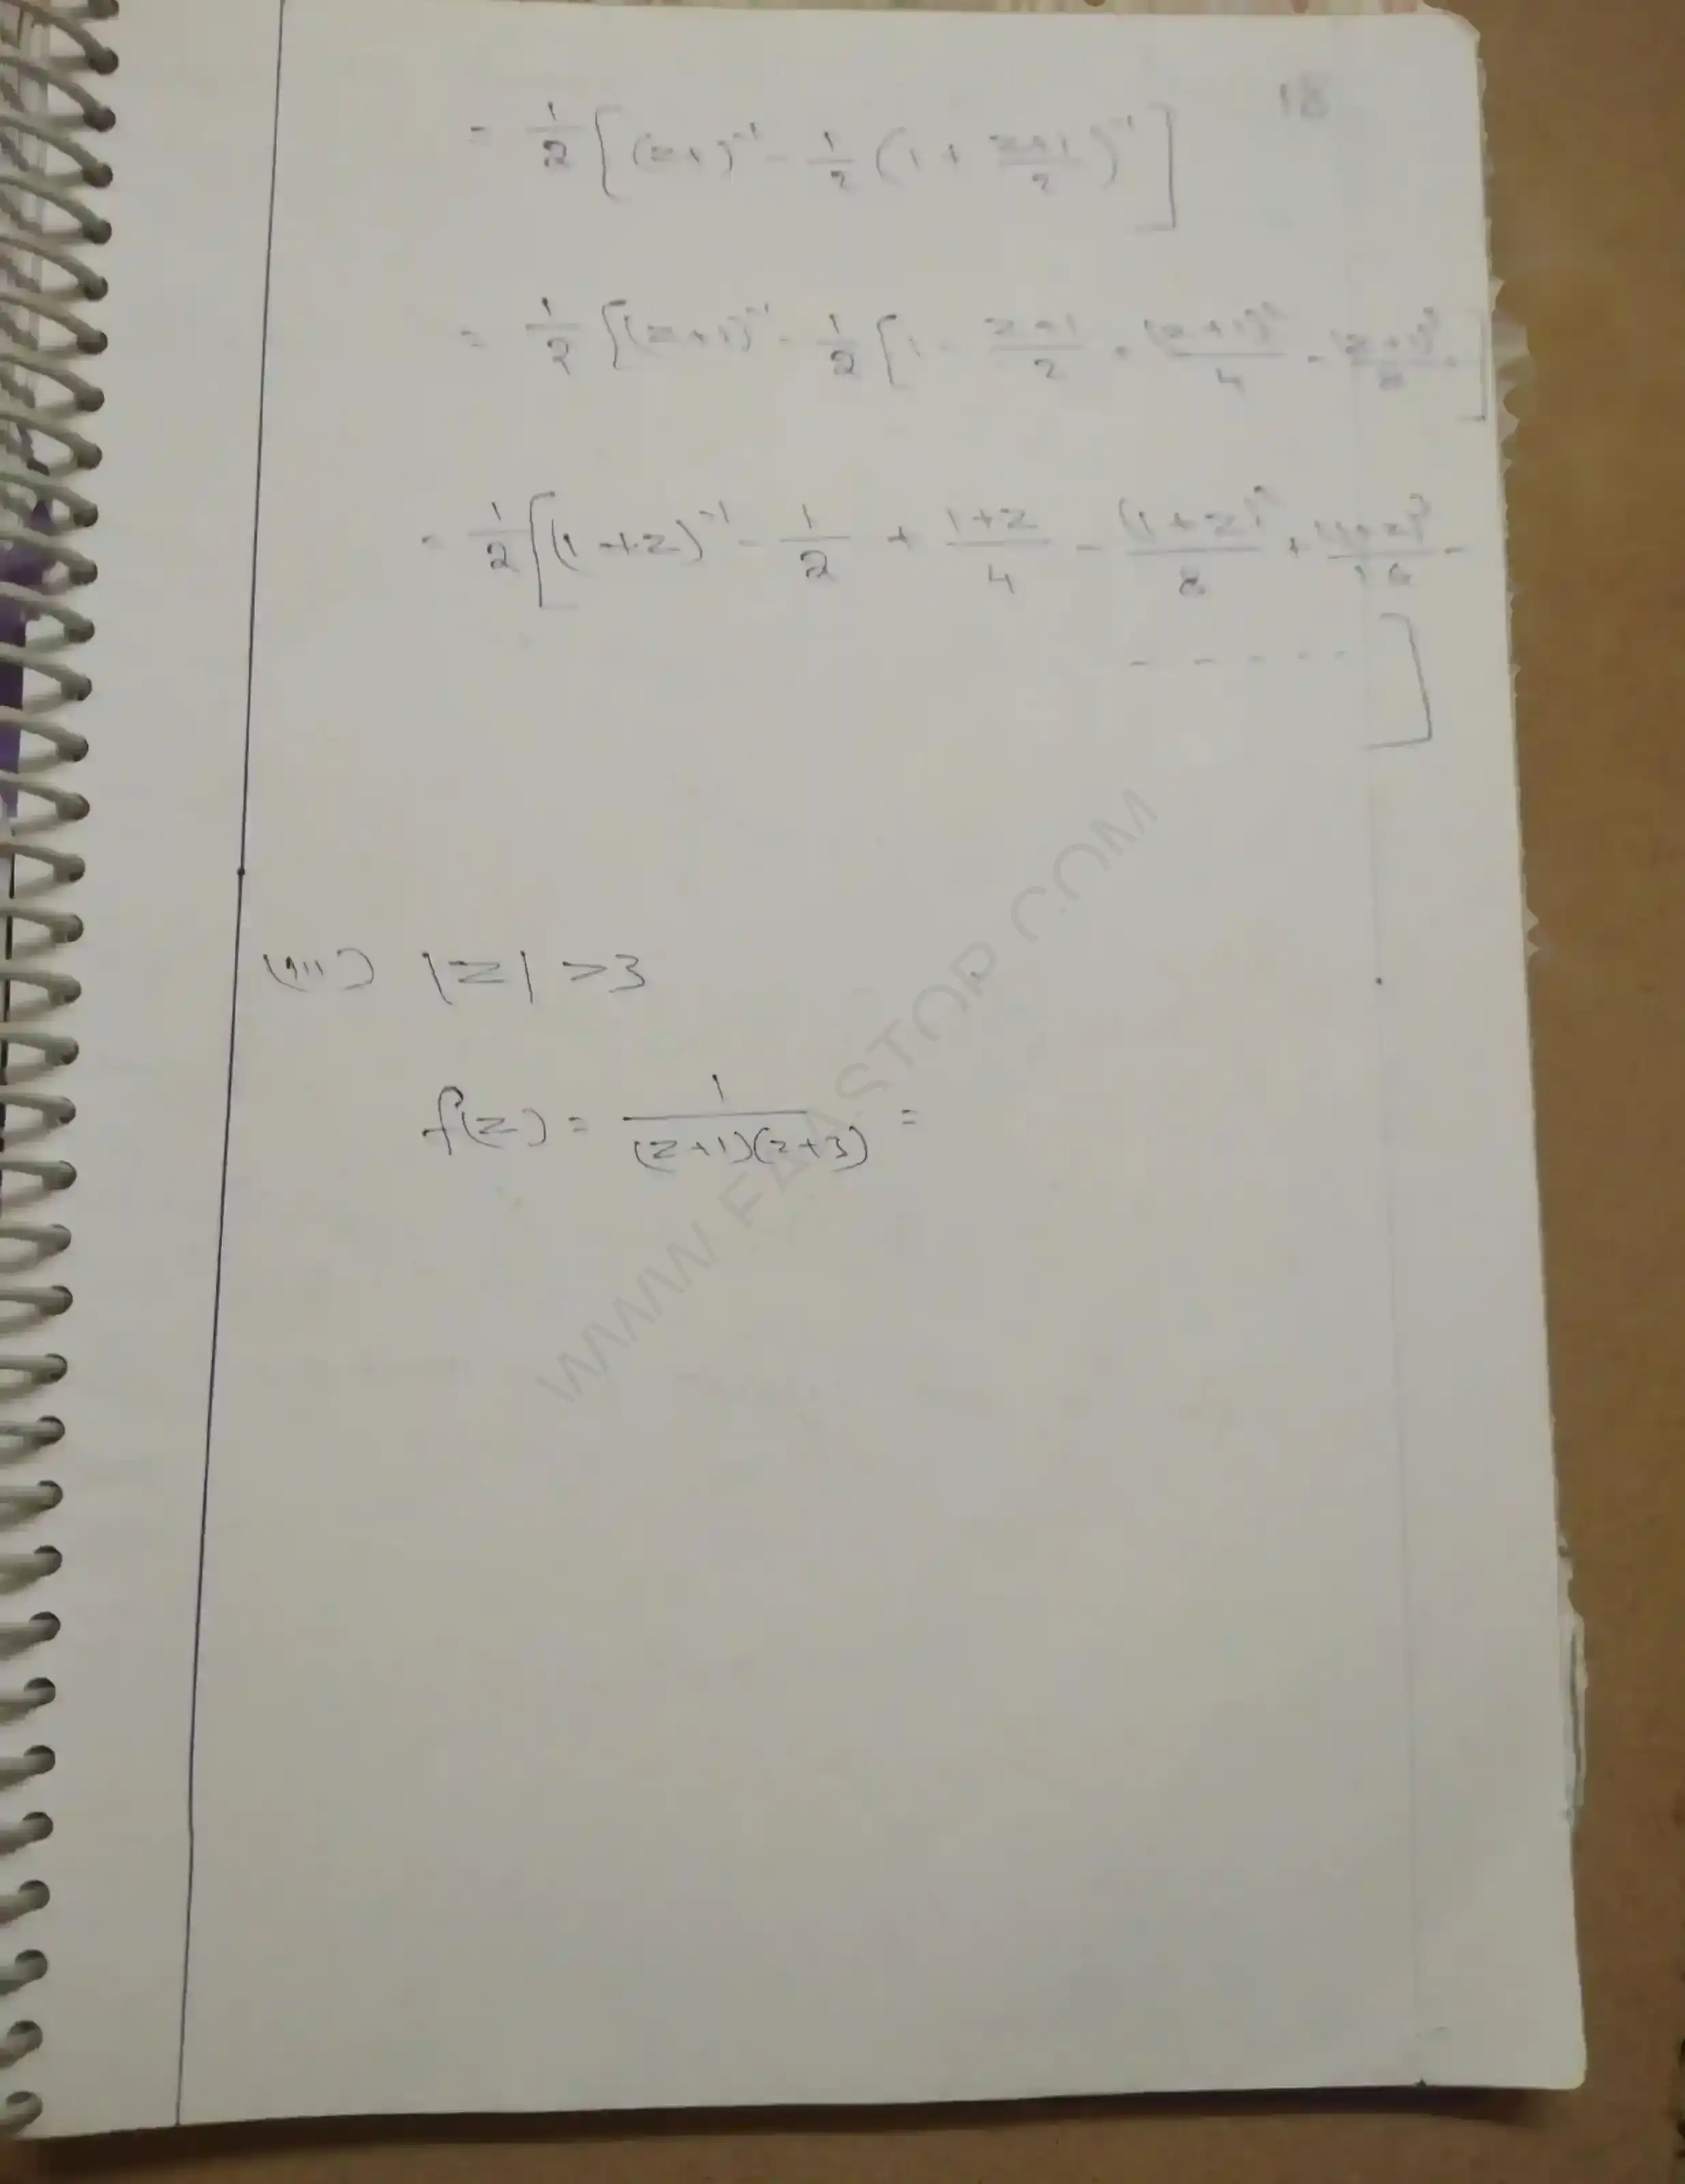 18
= 1/2 [(z+1)^-1 - 1/2 (1 + z+1/2)^-1]
= 1/2 [(z+1)^-1 - 1/2 [1 - z+1/2 + (z+1)^2/4 - (z+1)^3/8 -]
= 1/2 [(1+z)^-1 - 1/2 + 1+z/4 - (1+z)^2/8 + (1+z)^3/16 -
- - - - -]
(iii) |z| >3
f(z) = 1/(z+1)(z+3) =
WWW.FAASTOP.COM